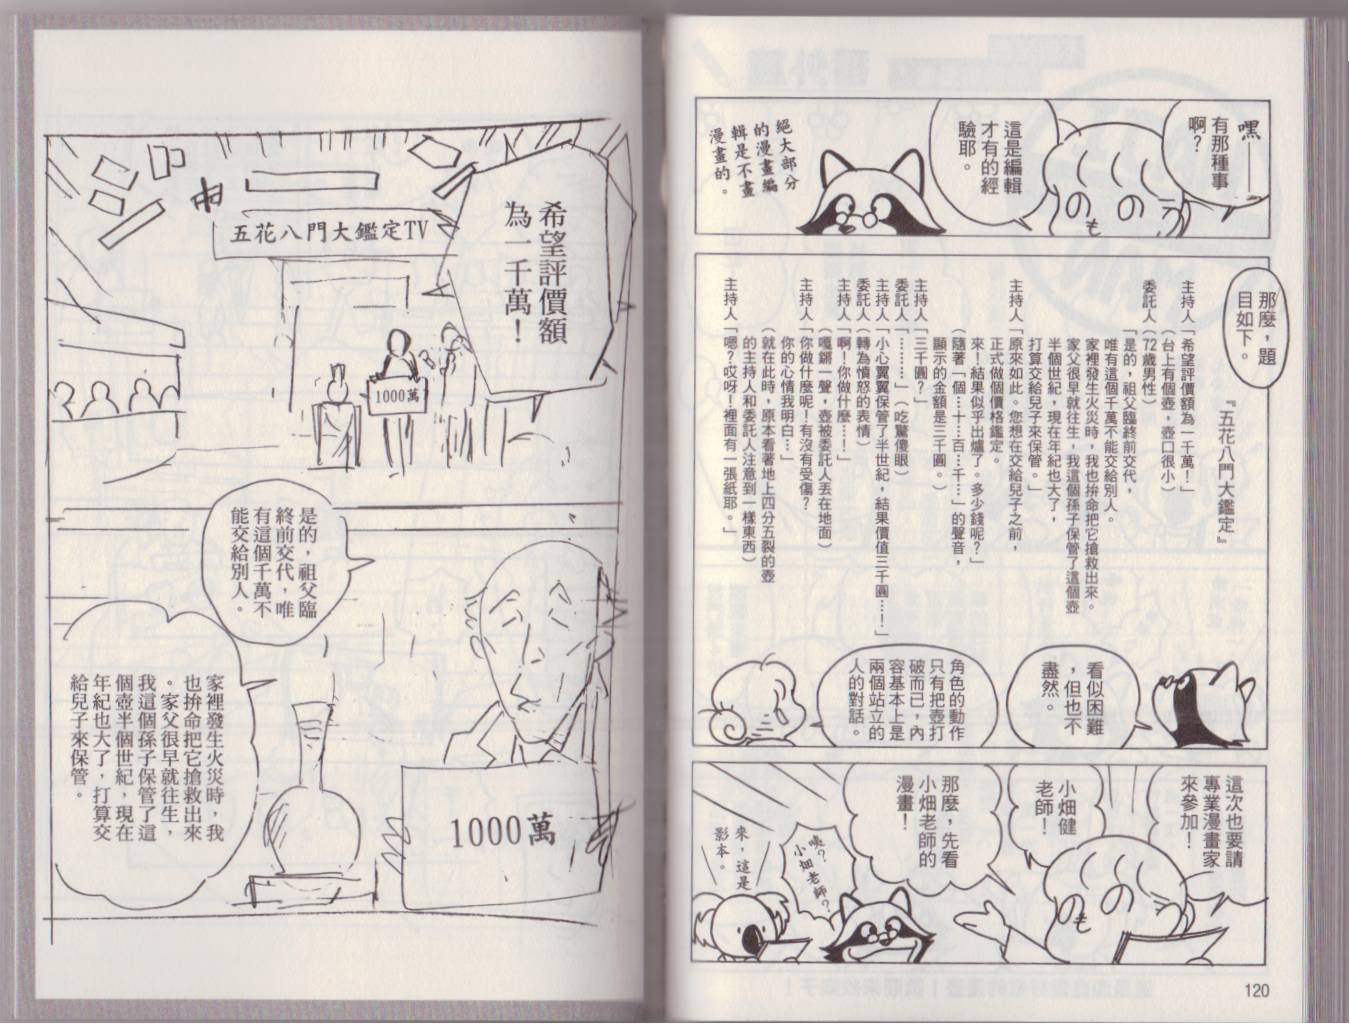 嘿——
有那種事
啊?
這是編輯
才有的經
驗耶。
絕大部分
的漫畫編
輯是不畫
漫畫的。
那麼,題
目如下。
『五花八門大鑑定』
主持人「希望評價額為一千萬!」
(台上有個壺,壺口很小)
委託人(72歲男性)
「是的,祖父臨終前交代,
唯有這個千萬不能交給別人。
家裡發生火災時,我也拚命把它搶救出來。
家父很早就往生,我這個孫子保管了這個壺
半個世紀,現在年紀也大了,
打算交給兒子來保管。」
主持人「原來如此。您想在交給兒子之前,
正式做個價格鑑定。
來!結果似乎出爐了。多少錢呢?」
(隨著「個…十…百…千…」的聲音,
顯示的金額是三千圓。)
主持人「三千圓?」
委託人「………」(吃驚傻眼)
主持人「小心翼翼保管了半世紀,結果價值三千圓…!」
委託人(轉為憤怒的表情)
主持人「啊!你做什麼…!」
(嘎鏘一聲,壺被委託人丟在地面)
主持人「你做什麼呢!有沒有受傷?
你的心情我明白…」
(就在此時,原本看著地上四分五裂的壺
的主持人和委託人注意到一樣東西)
主持人「嗯?哎呀!裡面有一張紙耶。」
看似困難
,但也不
盡然。
角色的動作
只有把壺打
破而已,內
容基本上是
兩個站立的
人的對話。
這次也要請
專業漫畫家
來參加!
小畑健
老師!
那麼,先看
小畑老師的
漫畫!
咦?
小畑老師?
來,這是
影本。
120
希望評價額
為一千萬!
五花八門大鑑定TV
1000萬
是的,祖父臨
終前交代,唯
有這個千萬不
能交給別人。
家裡發生火災時,我
也拚命把它搶救出來
。家父很早就往生,
我這個孫子保管了這
個壺半個世紀,現在
年紀也大了,打算交
給兒子來保管。
1000萬